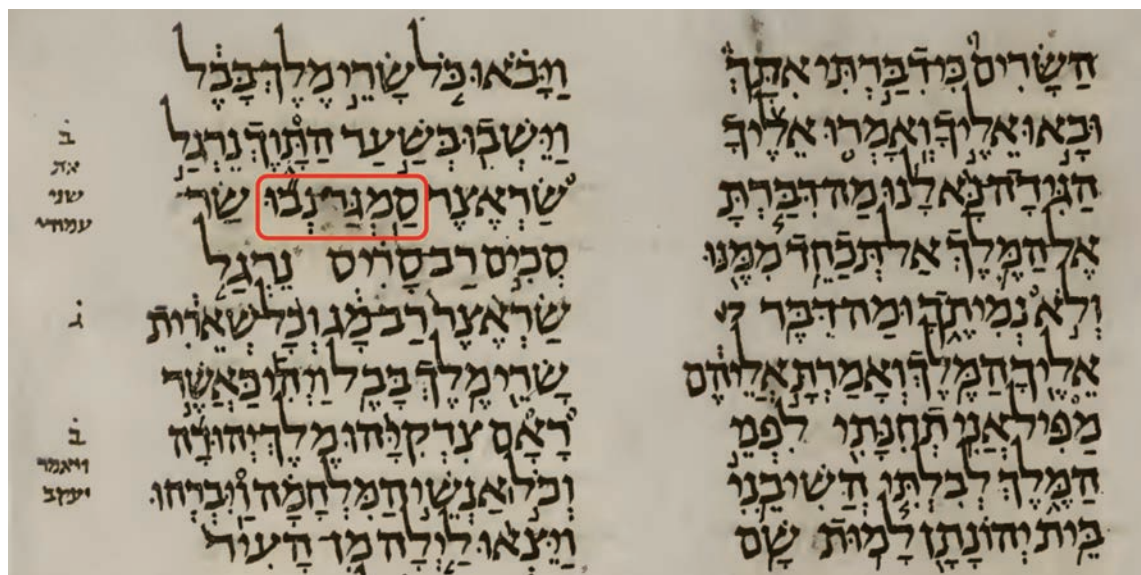 הַשָּׂרִים כִּי דִבַּרְתִּי אִתָּךְ
וּבָאוּ אֵלֶיךָ וְאָמְרוּ אֵלֶיךָ
הַגִּידָה נָּא לָנוּ מַה דִּבַּרְתָּ
אֶל הַמֶּלֶךְ אַל תְּכַחֵד מִמֶּנּוּ
וְלֹא נְמִיתֶךָ וּמַה דִּבֶּר
אֵלֶיךָ הַמֶּלֶךְ וְאָמַרְתָּ אֲלֵיהֶם
מַפִּיל אֲנִי תְחִנָּתִי לִפְנֵי
הַמֶּלֶךְ לְבִלְתִּי הֲשִׁיבֵנִי
בֵּית יְהוֹנָתָן לָמוּת שָׁם
וַיָּבֹאוּ כֹּל שָׂרֵי מֶלֶךְ בָּבֶל
וַיֵּשְׁבוּ בְּשַׁעַר הַתָּוֶךְ נֵרְגַל
שַׂר אֶצֶר סַמְגַּר נְבוּ שַׂר
סְכִים רַב סָרִיס נֵרְגַל
שַׂר אֶצֶר רַב מָג וְכָל שְׁאֵרִית
שָׂרֵי מֶלֶךְ בָּבֶל וַיְהִי כַּאֲשֶׁר
רָאָם צִדְקִיָּהוּ מֶלֶךְ יְהוּדָה
וְכֹל אַנְשֵׁי הַמִּלְחָמָה וַיִּבְרְחוּ
וַיֵּצְאוּ לַיְלָה מִן הָעִיר
ב
את
שני
עמודי
ג
ב
ויאמר
יעקב